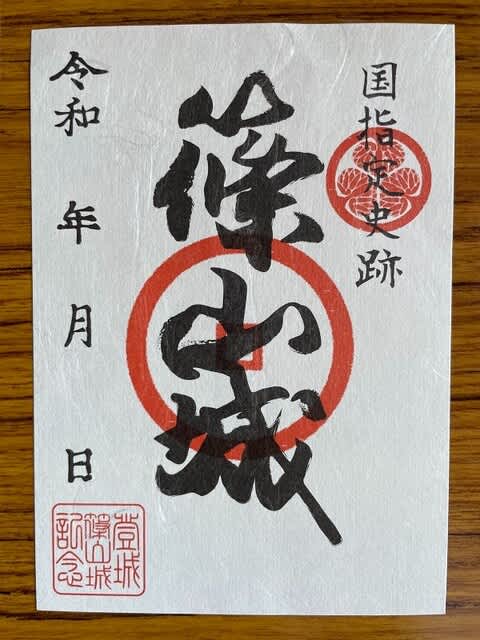 国指定史跡
篠山城
令和 年 月 日
登城
篠山城
記念